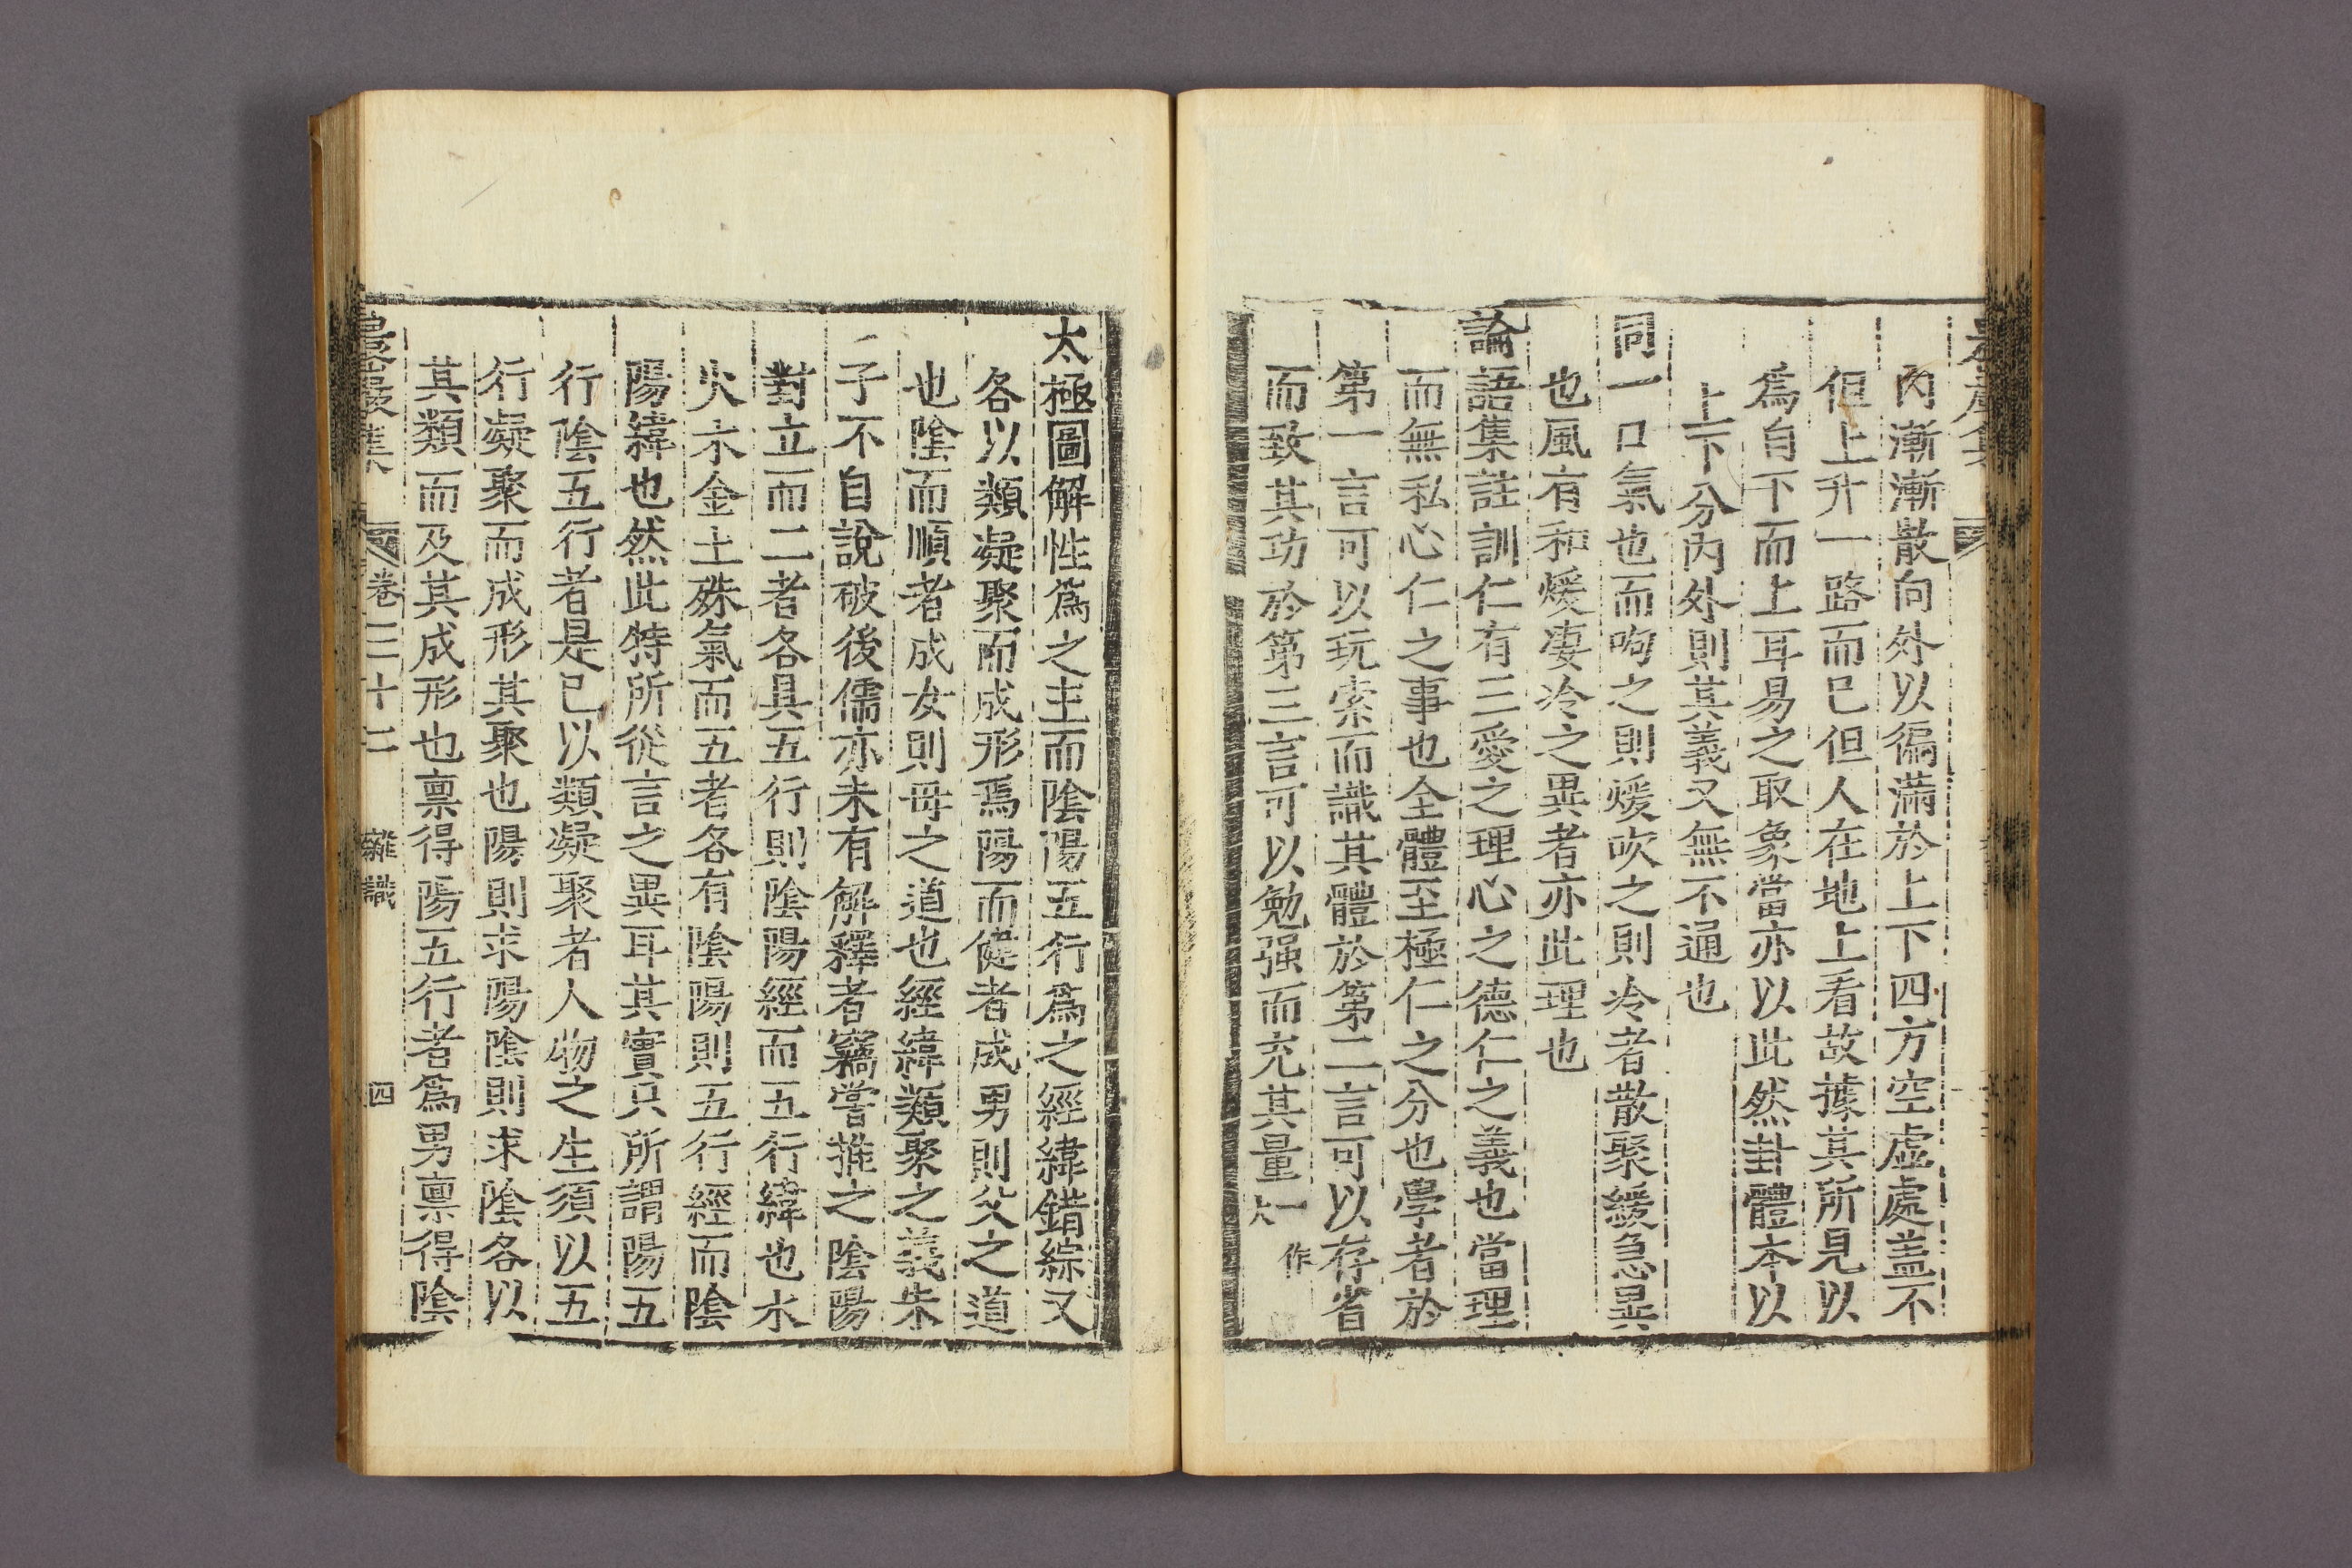 內漸漸散向外以徧滿於上下四方空虛處盖不
但上升一路而已但人在地上看故據其所見以
爲自下而上耳易之取象當亦以此然卦體本以
上下分內外則其義又無不通也
同一口氣也而呴之則煖吹之則冷者散聚緩急異
也風有和煖凄冷之異者亦此理也
論語集註訓仁有三愛之理心之德仁之義也當理
而無私心仁之事也全體至極仁之分也學者於
第一言可以玩索而識其體於第二言可以存省
而致其功於第三言可以勉强而充其量一作大
太極圖解性爲之主而陰陽五行爲之經緯錯綜又
各以類凝聚而成形焉陽而健者成男則父之道
也陰而順者成女則母之道也經緯類聚之義朱
子不自說破後儒亦未有解釋者竊嘗推之陰陽
對立而二者各具五行則陰陽經而五行緯也水
火木金土殊氣而五者各有陰陽則五行經而陰
陽緯也然此特所從言之異耳其實只所謂陽五
行陰五行者是已以類凝聚者人物之生須以五
行凝聚而成形其聚也陽則求陽陰則求陰各以
其類而及其成形也禀得陽五行者爲男禀得陰
卷三十二 雜識 四